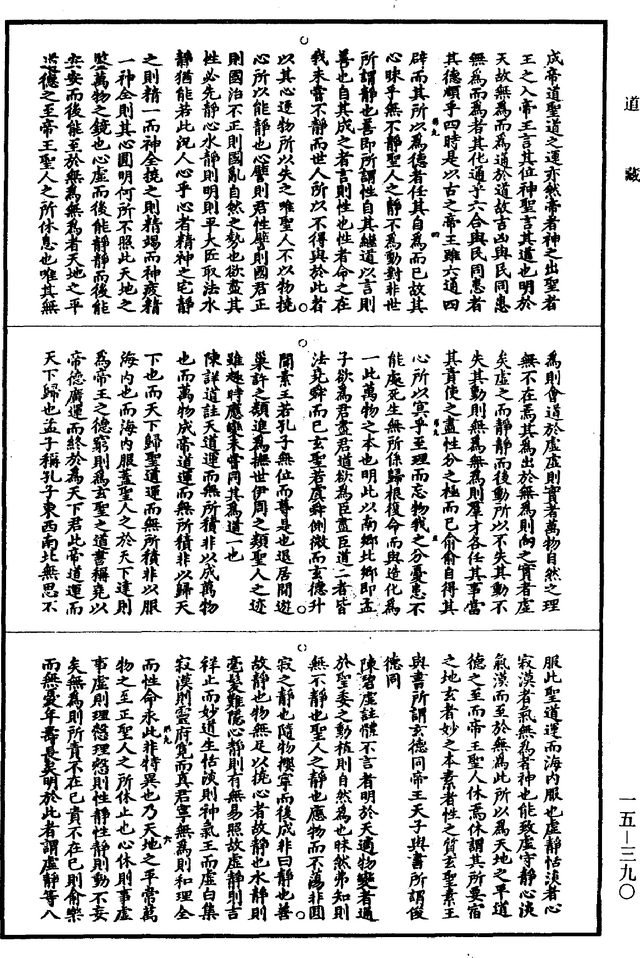 道藏
成帝道聖道之運亦然帝者神之出聖者
王之入帝王言其位神聖言其道也明於
天故無為而為通於道故吉凶與民同患
無為而為者其化通乎六合與民同患者
其德順乎四時是以古之帝王雖六通四
辟而其所以為德者任其自為而已故其
心昧乎無不靜聖人之靜不為動對非世
所謂靜也善即所謂性自其繼道以言則
善也自其成之者言則性也性者命之在
我未嘗不靜而世人所以不得與於此者
以其心逐物所以失之唯聖人不以物撓
心所以能靜也心譬則君性譬則國君正
則國治不正則國亂自然之勢也欲盡其
性必先靜心水靜則明則平大匠取法水
靜猶能若此況人心乎心者精神之宅靜
之則精一而神全撓之則精竭而神疲精
一神全則其心圓明何所不照此天地之
鑒萬物之鏡也心虛而後能靜靜而後能
安安而後能至於無為無為者天地之平
道德之至帝王聖人之所休息也唯其無
為則會道於虛虛則實者萬物自然之理
無不在焉其為出於無為則向之實者虛
矣虛之而靜靜而後動所以不失其動不
失其動則無為無為則群才各任其事當
其責使之盡性分之極而已俞俞自得其
心所以冥乎至理而忘物我之分憂患不
能處死生無所係歸根復命而與造化為
一此萬物之本也明此以南鄉北鄉即孟
子欲為君盡君道欲為臣盡臣道二者皆
法堯舜而已玄聖者虞舜側微而玄德升
聞素王若孔子無位而尊是也退居閒遊
巢許之類進為撫世伊周之類聖人之迹
雖趣時應變未嘗同其為道一也
陳詳道註天道運而無所積非以成萬物
也而萬物成帝道運而無所積非以歸天
下也而天下歸聖道運而無所積非以服
海內也而海內服蓋聖人之於天下達則
為帝王之德窮則為玄聖之道書稱堯以
帝德廣運而終於為天下君此帝道運而
天下歸也孟子稱孔子東西南北無思不
服此聖道運而海內服也虛靜恬淡者心
寂漠者氣無為者神也能致虛守靜心淡
氣漠而至於無為此所以為天地之平道
德之至而帝王聖人休焉休謂其所要宿
之地玄者妙之本素者性之質玄聖素王
與書所謂玄德同帝王天子與書所謂俊
德同
陳碧虛註惟不言者明於天適物變者通
於聖委之動植則自然為也昧然弗知則
無不靜也聖人之靜也應物而不蕩非圓
寂之靜也隨物攖寧而後成非曰靜也善
故靜也物無足以撓心者故靜也水靜則
毫髮難隱心靜則有無易照故虛靜則吉
祥止而妙道生恬淡則神氣王而虛白集
寂漠則靈府寬而真君寧無為則和理全
而性命永此非特異也乃天地之平常萬
物之至正聖人之所休止也心休則事虛
事虛則理愨理愨則性靜性靜則動不妄
矣無為則所責不在己責不在己則俞樂
而無憂年壽長矣明於此者謂虛靜等八
一五—三九〇